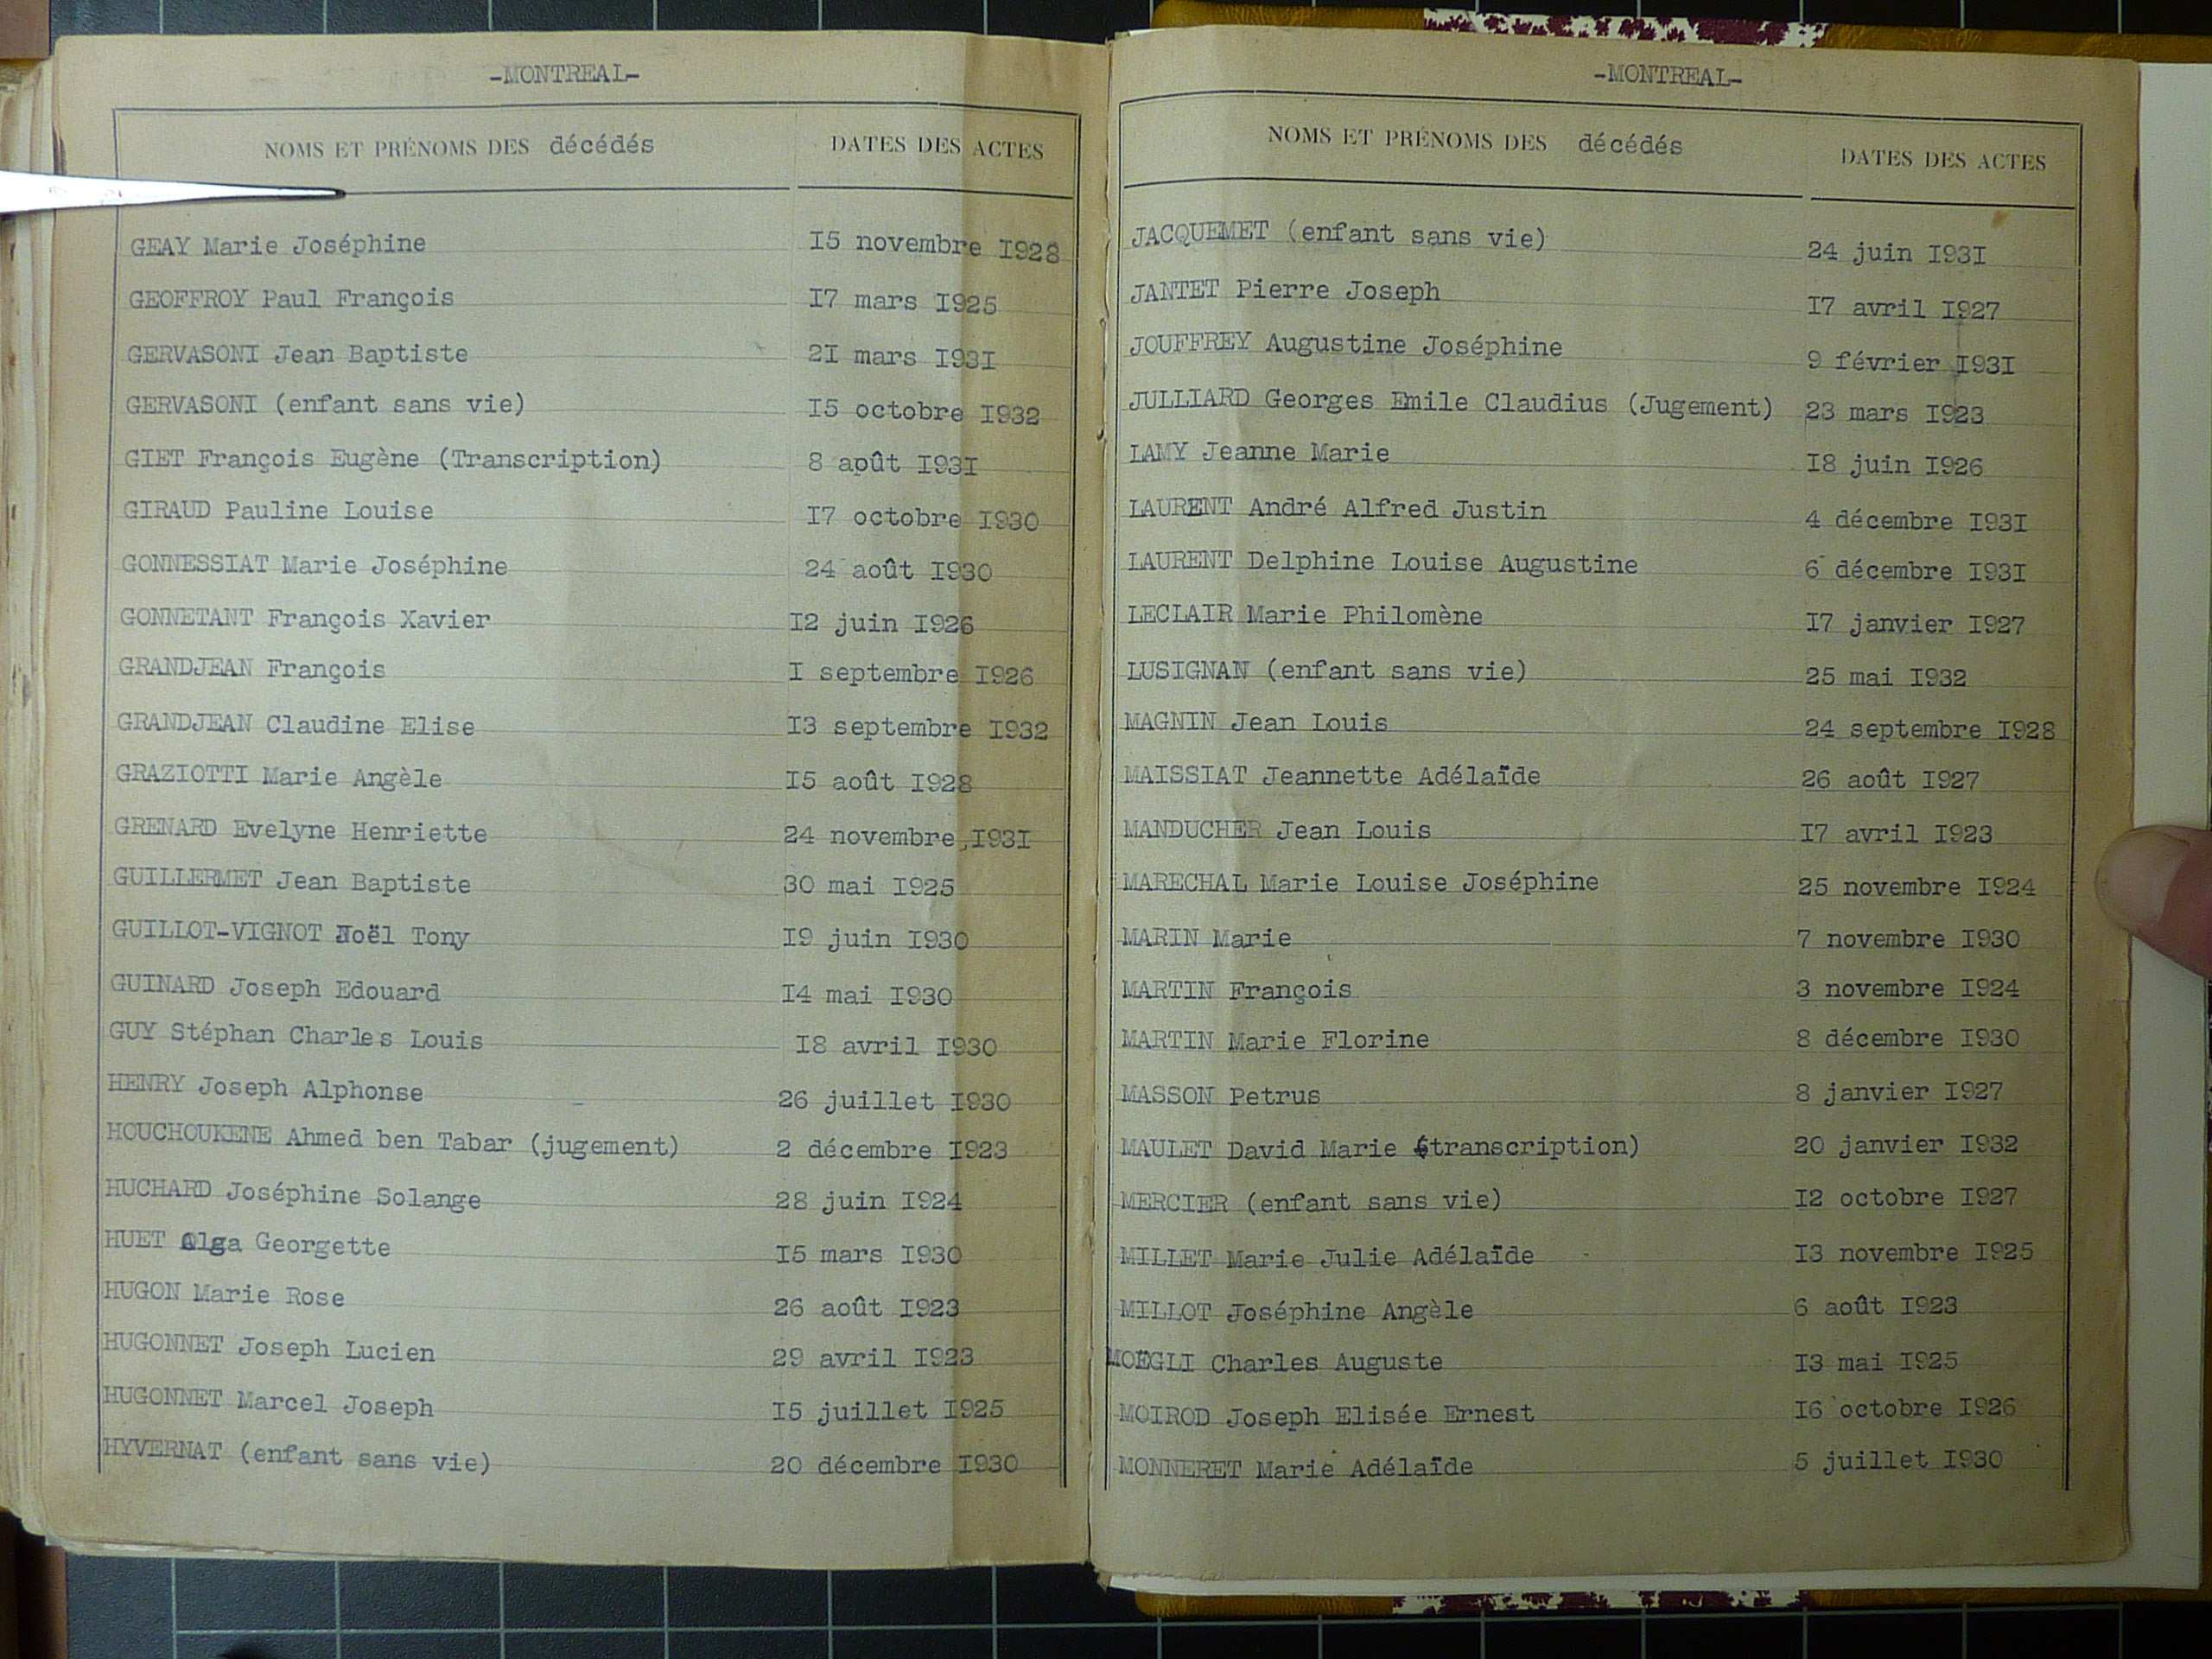 -MONTREAL-
NOMS ET PRÉNOMS DES décédés DATES DES ACTES
GEAY Marie Joséphine I5 novembre I928
GEOFFROY Paul François I7 mars I925
GERVASONI Jean Baptiste 2I mars I93I
GERVASONI (enfant sans vie) I5 octobre I932
GIET François Eugène (Transcription) 8 août I93I
GIRAUD Pauline Louise I7 octobre I930
GONNESSIAT Marie Joséphine 24 août I930
GONNETANT François Xavier I2 juin I926
GRANDJEAN François I septembre I926
GRANDJEAN Claudine Elise I3 septembre I932
GRAZIOTTI Marie Angèle I5 août I928
GRENARD Evelyne Henriette 24 novembre I93I
GUILLERMET Jean Baptiste 30 mai I925
GUILLOT-VIGNOT Noël Tony I9 juin I930
GUINARD Joseph Edouard I4 mai I930
GUY Stéphan Charles Louis I8 avril I930
HENRY Joseph Alphonse 26 juillet I930
HOUCHOUKENE Ahmed ben Tabar (jugement) 2 décembre I923
HUCHARD Joséphine Solange 28 juin I924
HUET Olga Georgette I5 mars I930
HUGON Marie Rose 26 août I923
HUGONNET Joseph Lucien 29 avril I923
HUGONNET Marcel Joseph I5 juillet I925
HYVERNAT (enfant sans vie) 20 décembre I930
-MONTREAL-
NOMS ET PRÉNOMS DES décédés DATES DES ACTES
JACQUEMET (enfant sans vie) 24 juin I93I
JANTET Pierre Joseph I7 avril I927
JOUFFREY Augustine Joséphine 9 février I93I
JULLIARD Georges Emile Claudius (Jugement) 23 mars I923
LAMY Jeanne Marie I8 juin I926
LAURENT André Alfred Justin 4 décembre I93I
LAURENT Delphine Louise Augustine 6 décembre I93I
LECLAIR Marie Philomène I7 janvier I927
LUSIGNAN (enfant sans vie) 25 mai I932
MAGNIN Jean Louis 24 septembre I928
MAISSIAT Jeannette Adélaïde 26 août I927
MANDUCHER Jean Louis I7 avril I923
MARECHAL Marie Louise Joséphine 25 novembre I924
MARIN Marie 7 novembre I930
MARTIN François 3 novembre I924
MARTIN Marie Florine 8 décembre I930
MASSON Petrus 8 janvier I927
MAULET David Marie (transcription) 20 janvier I932
MERCIER (enfant sans vie) I2 octobre I927
MILLET Marie Julie Adélaïde I3 novembre I925
MILLOT Joséphine Angèle 6 août I923
MOEGLI Charles Auguste I3 mai I925
MOIROD Joseph Elisée Ernest I6 octobre I926
MONNERET Marie Adélaïde 5 juillet I930